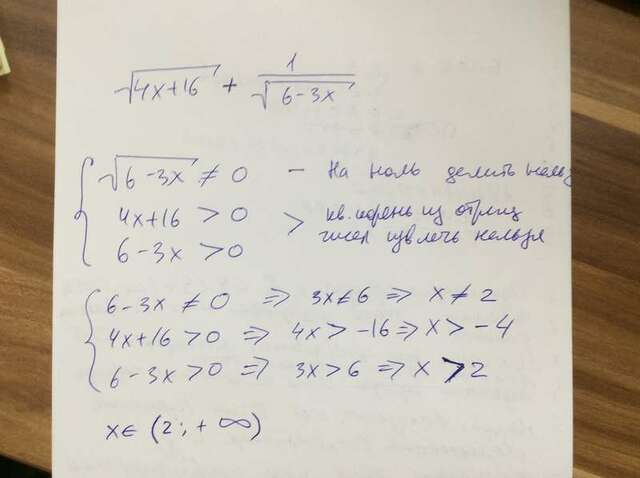 √(4x+16) + 1/√(6-3x)
√(6-3x) ≠ 0 — На ноль делить нельз
4x+16 > 0 > кв. корень из отриц
6-3x > 0 чисел извлечь нельзя
6-3x ≠ 0 ⇒ 3x≠6 ⇒ x ≠ 2
4x+16 > 0 ⇒ 4x > -16 ⇒ x > -4
6-3x > 0 ⇒ 3x > 6 ⇒ x > 2
x∈ (2; + ∞)